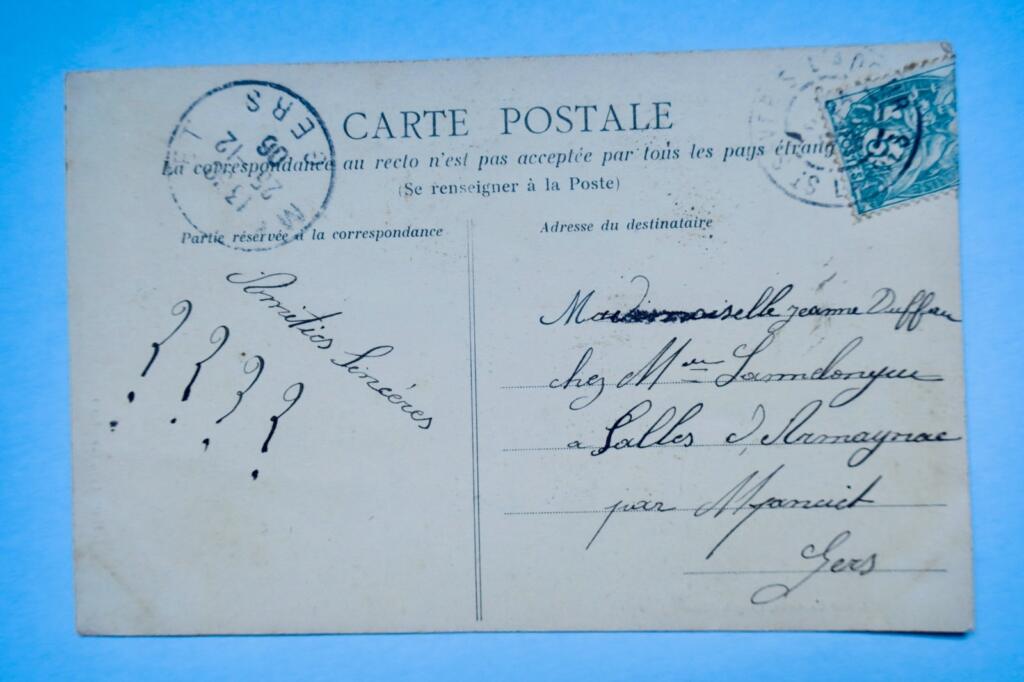 CARTE POSTALE
La correspondance au recto n'est pas acceptée par tous les pays étrang
(Se renseigner à la Poste)
Partie réservée à la correspondance
Adresse du destinataire
Amitiés Sincères
? ? ? ?
Mademoiselle jeanne Duffau
chez Mme
a Salles d'Armagnac
par Manciet
Gers
13
25 12
06
GERS